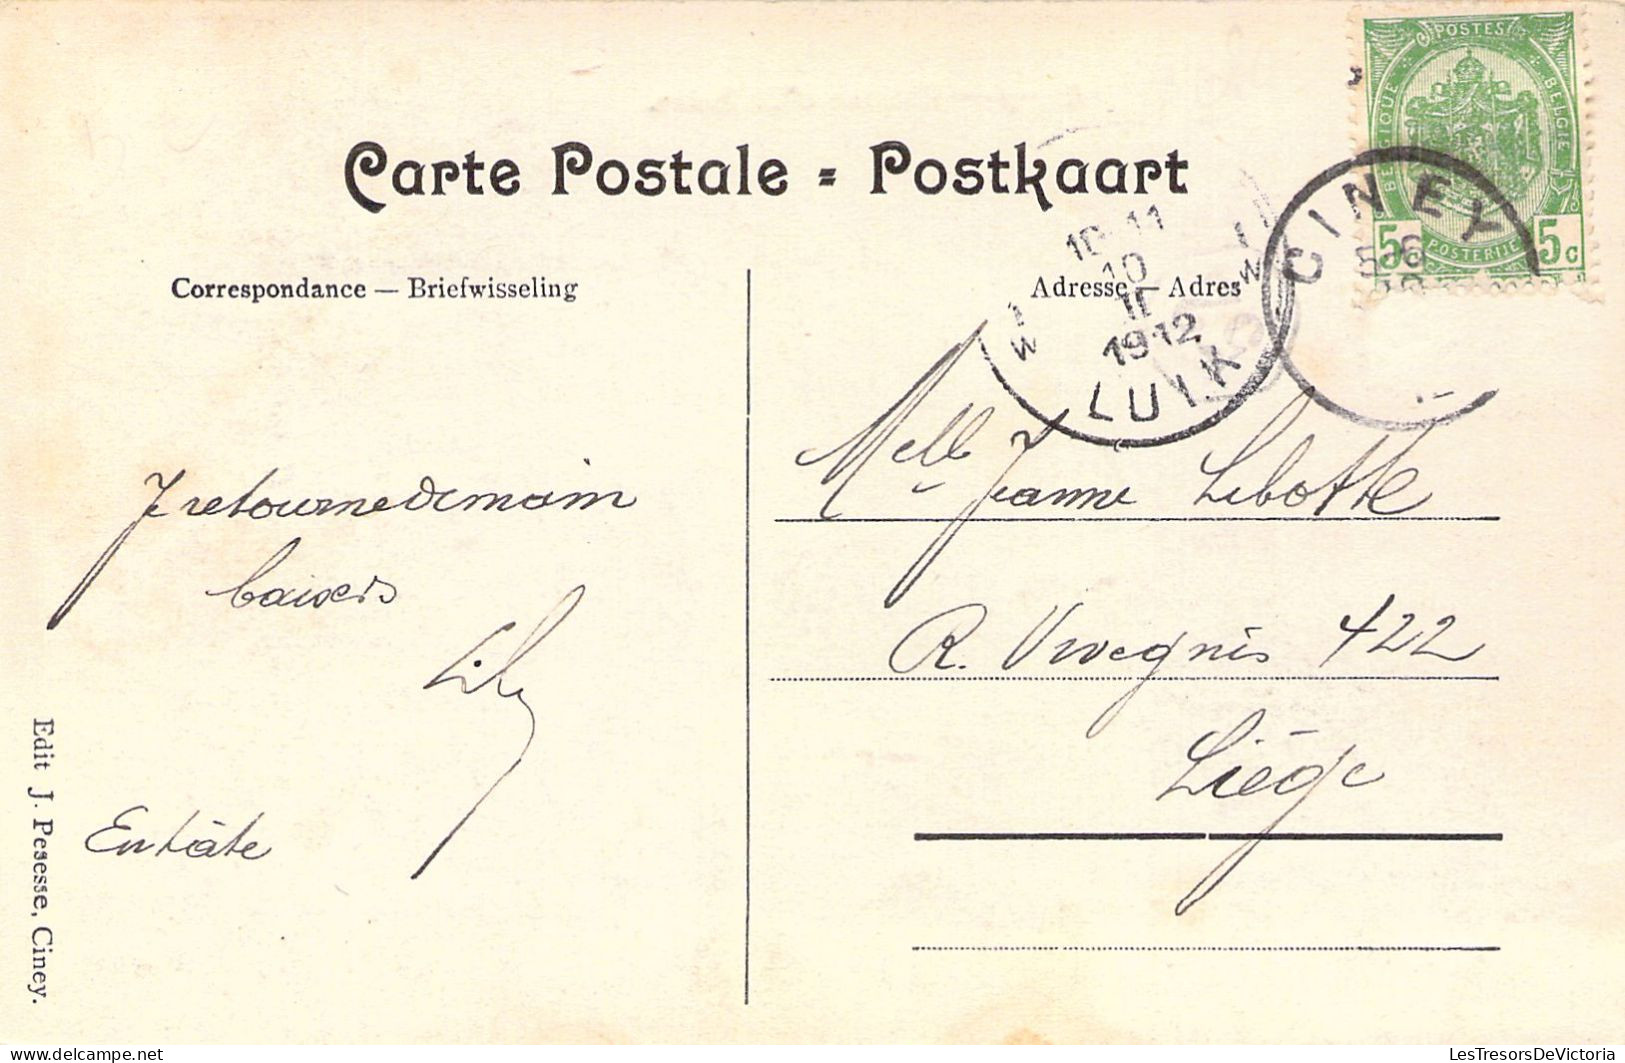 POSTES
BELGIQUE
BELGIE
5c POSTERIJE 5c
Carte Postale = Postkaart
CINEY
5-6
10-11
10
II
1912
LUIK
Correspondance — Briefwisseling
Adresse — Adres
Je retourne demain
baisers
Lily
En hâte
Melle Jeanne Libotte
R. Vivegnis 422
Liège
Edit J. Pesesse, Ciney.
LesTresorsDeVictoria